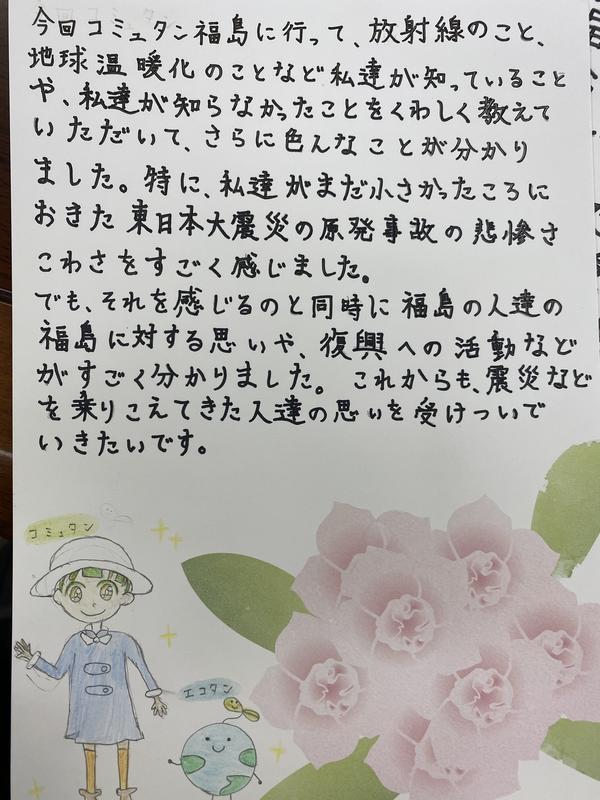 今回コミュタン福島に行って、放射線のこと、
地球温暖化のことなど私達が知っていること
や、私達が知らなかったことをくわしく教えて
いただいて、さらに色んなことが分かり
ました。特に、私達がまだ小さかったころに
おきた東日本大震災の原発事故の悲惨さ
こわさをすごく感じました。
でも、それを感じるのと同時に福島の人達の
福島に対する思いや、復興への活動など
がすごく分かりました。これからも、震災など
を乗りこえてきた人達の思いを受けついで
いきたいです。
コミュタン
エコタン